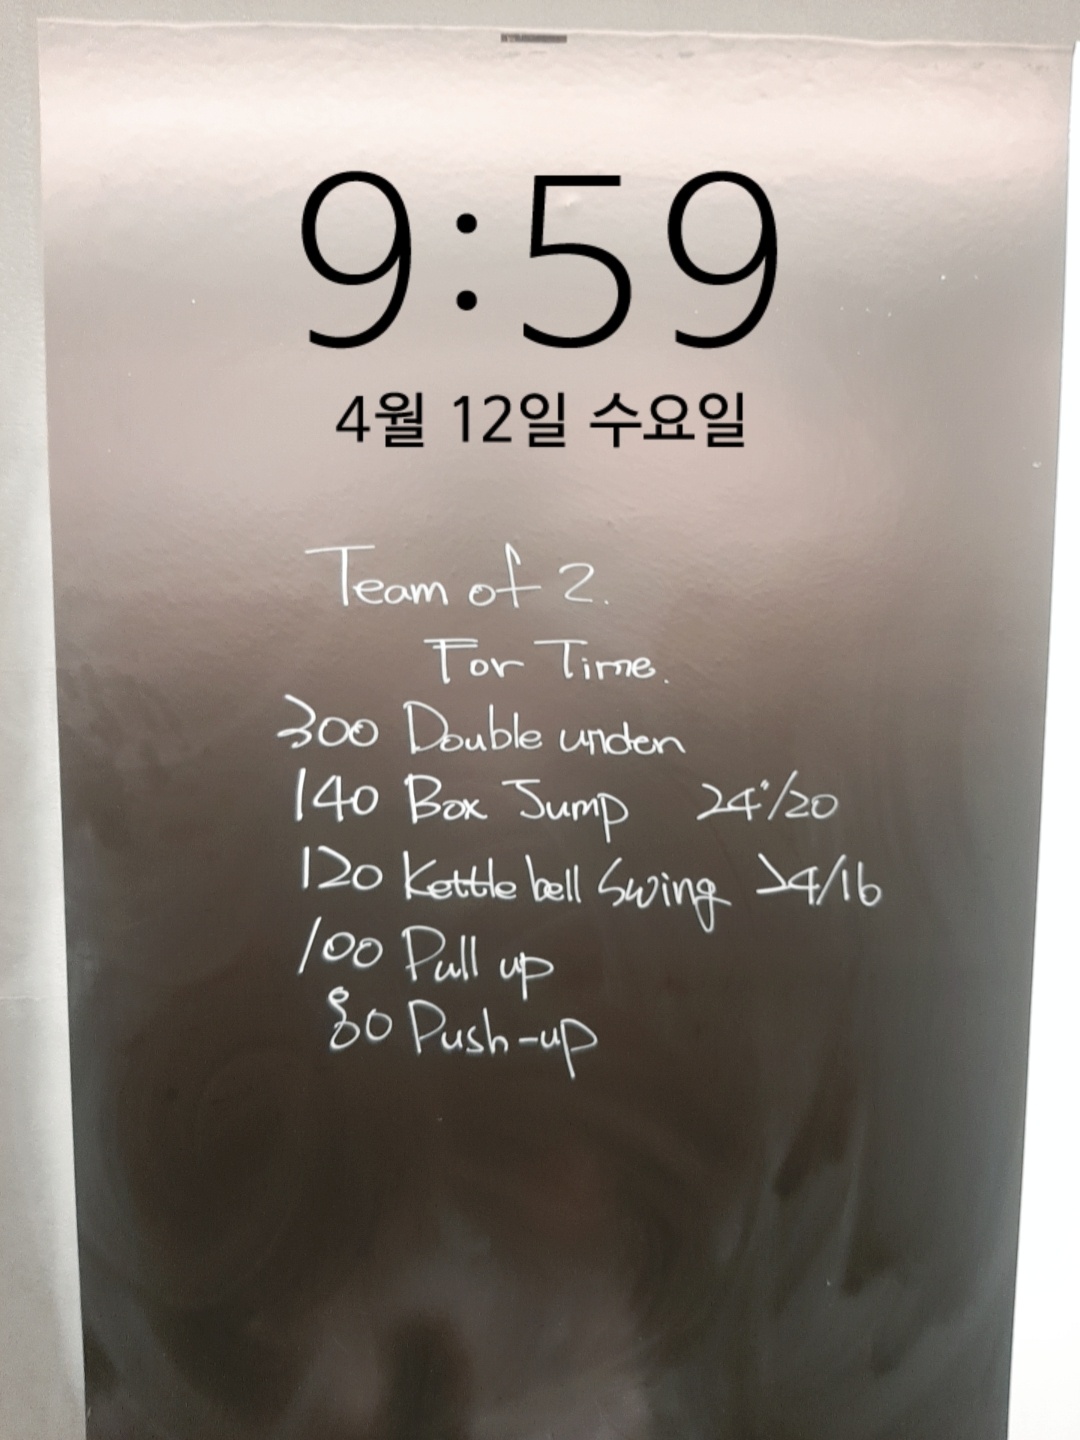 9:59
4월 12일 수요일
Team of 2.
For Time.
300 Double under
140 Box Jump 24"/20
120 Kettle bell Swing 24/16
100 Pull up
80 Push-up